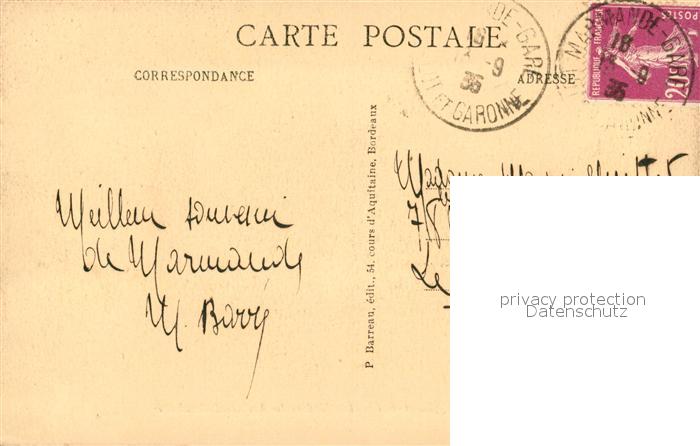 CARTE POSTALE
CORRESPONDANCE
ADRESSE
MARMANDE-GARE
18
9
35
LOT ET GARONNE
POSTES
REPUBLIQUE FRANÇAISE
20c
MARMANDE-GARE
18
9
35
Meilleur souvenir
de Marmande
M. Barry
P. Barreau, édit., 54, cours d'Aquitaine, Bordeaux
Madame
7/8
Le
privacy protection
Datenschutz